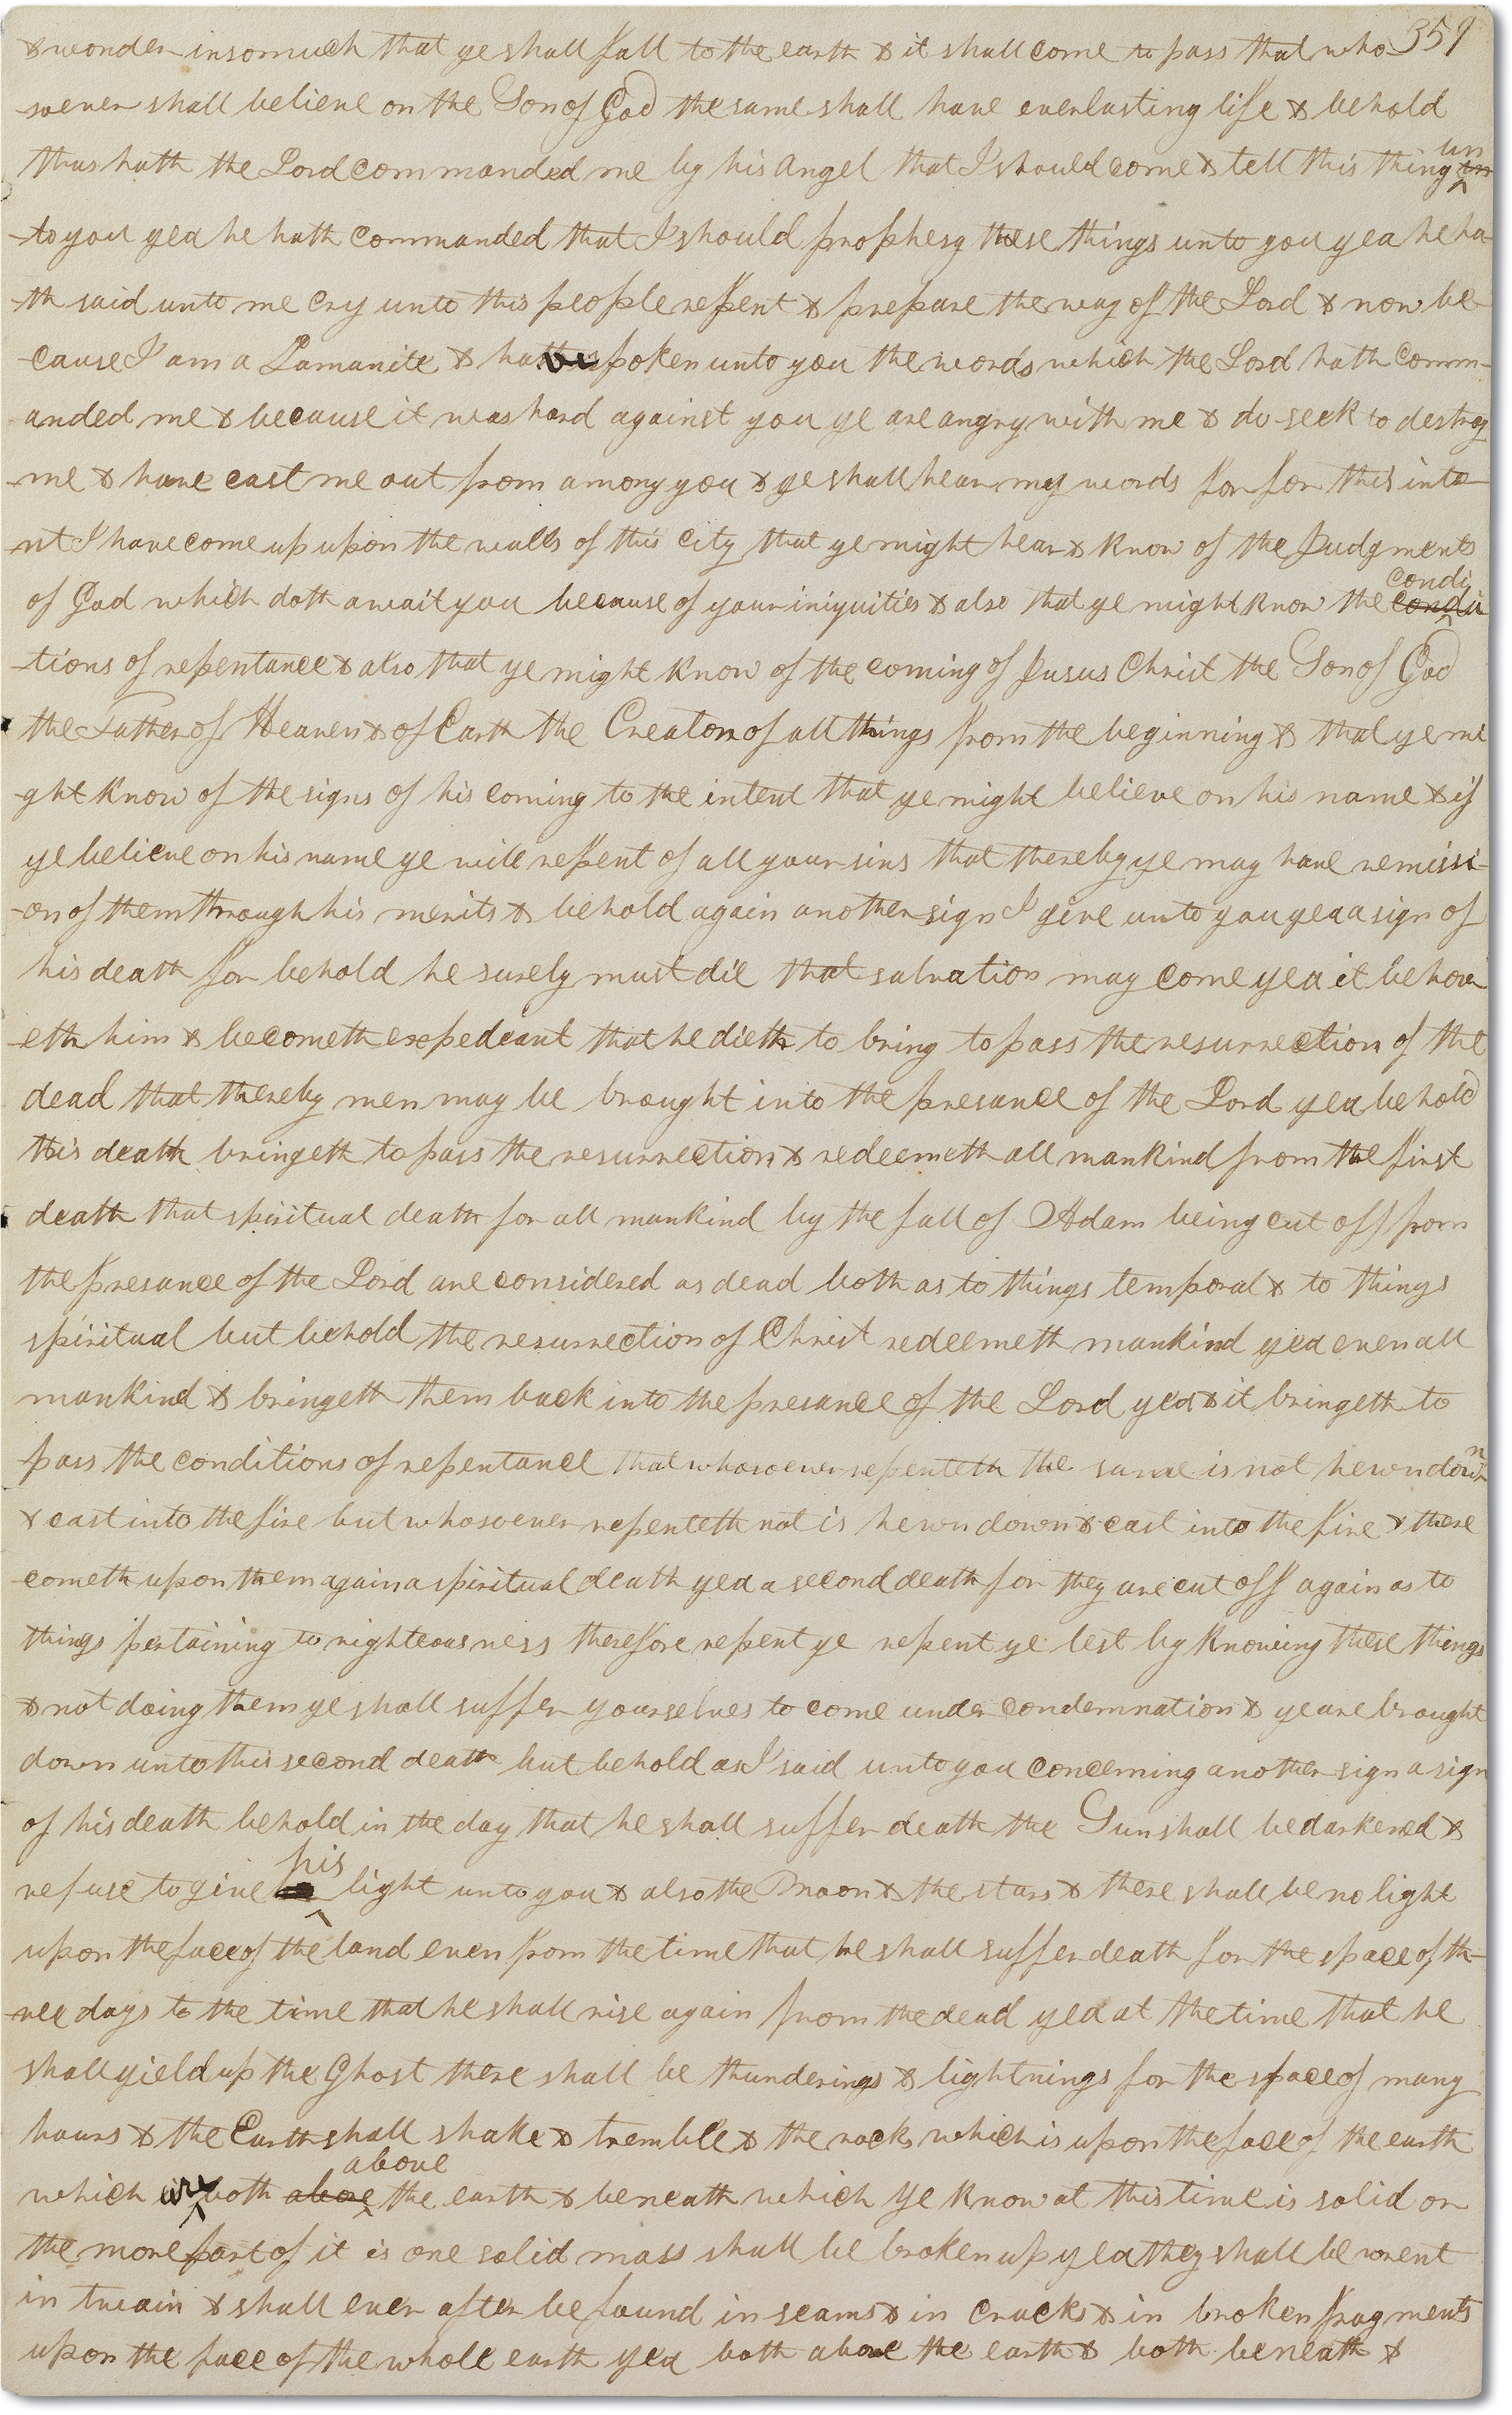 & wonder insomuch that ye shall fall to the earth & it shall come to pass that who- 359
soever shall believe on the Son of God the same shall have everlasting life & behold
thus hath the Lord commanded me by his Angel that I should come & tell this thing un
to you yea he hath commanded that I should prophesy these things unto you yea he ha-
-th said unto me cry unto this people repent & prepare the way of the Lord & now be-
-cause I am a Lamanite & have spoken unto you the words which the Lord hath comm-
anded me & because it was hard against you ye are angry with me & do seek to destroy
me & have cast me out from among you & ye shall hear my words for for this inte-
-nt I have come up upon the walls of this City that ye might hear & know of the Judgments
of God which doth await you because of your iniquities & also that ye might know the condi
-tions of repentance & also that ye might know of the coming of Jusus Christ the Son of God
the Father of Heaven & of Earth the Creator of all things from the beginning & that ye mi
-ght know of the signs of his coming to the intent that ye might believe on his name & if
ye believe on his name ye will repent of all your sins that thereby ye may have remissi-
-on of them through his merits & behold again another sign I give unto you yea a sign of
his death for behold he surely must die that salvation may come yea it behov
-eth him & becometh expedeant that he dieth to bring to pass the resurrection of the
dead that thereby men may be brought into the presance of the Lord yea behold
this death bringeth to pass the resurrection & redeemeth all mankind from the first
death that spiritual death for all mankind by the fall of Adam being cut off from
the presance of the Lord are considered as dead both as to things temporal & to things
spiritual but behold the resurrection of Christ redeemeth mankind yea even all
mankind & bringeth them back into the presance of the Lord yea & it bringeth to
pass the conditions of repentance that whosoever repenteth the same is not hewn down
& cast into the fire but whosoever repenteth not is hewn down & cast into the fire & there
cometh upon them again a spiritual death yea a second death for they are cut off again as to
things pertaining to righteousness therefore repent ye repent ye lest by knowing these things
& not doing them ye shall suffer yourselves to come under condemnation & ye are brought
down unto this second death but behold as I said unto you concerning another sign a sign
of his death behold in the day that he shall suffer death the Sun shall be darkened &
refuse to give his light unto you & also the Moon & the stars & there shall be no light
upon the face of the land even from the time that he shall suffer death for the space of th-
-ree days to the time that he shall rise again from the dead yea at the time that he
shall yield up the Ghost there shall be thunderings & lightnings for the space of many
hours & the Earth shall shake & tremble & the rocks which is upon the face of the earth
which is both above the earth & beneath which ye know at this time is solid or
the more part of it is one solid mass shall be broken up yea they shall be rent
in twain & shall ever after be found in seams & in cracks & in broken fragments
upon the face of the whole earth yea both above the earth & both beneath &